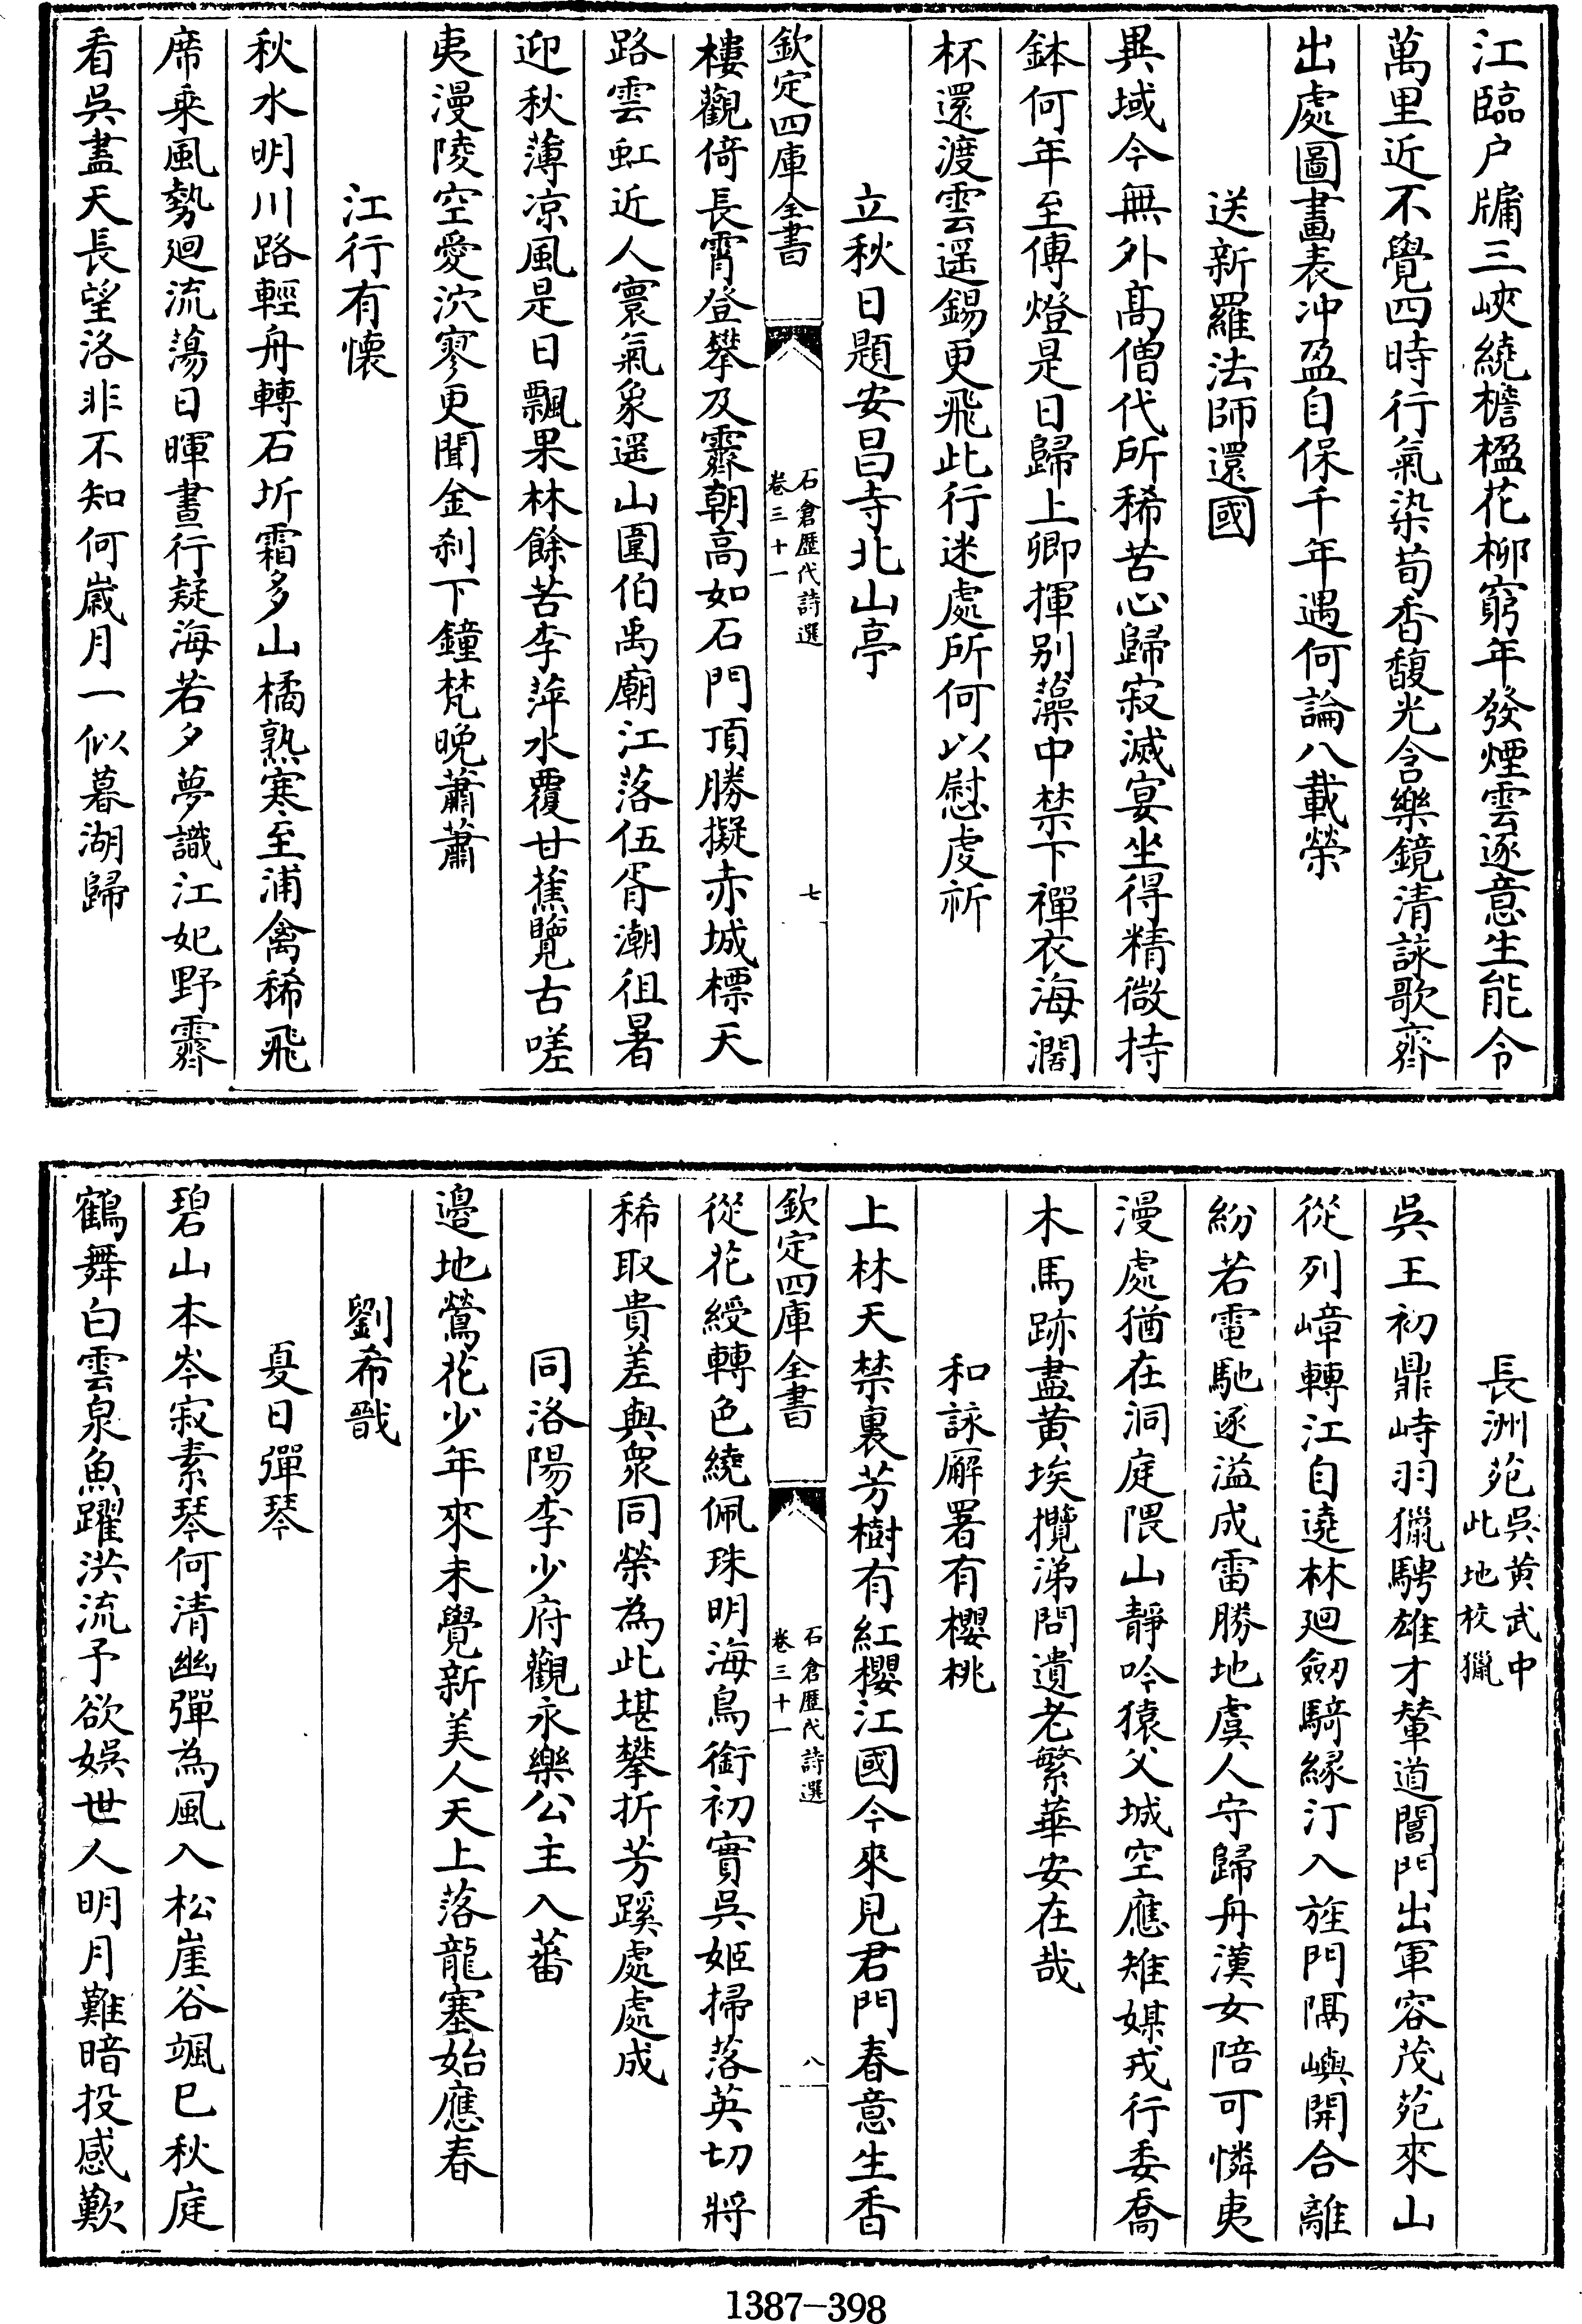 江臨户牖三峽繞檐楹花柳窮年發煙雲逐意生能令
萬里近不覺四時行氣染荀香馥光含樂鏡清詠歌齊
出處圖畫表冲盈自保千年遇何論八載榮
送新羅法師還國
異域今無外高僧代所稀苦心歸寂滅宴坐得精微持
鉢何年至傳燈是日歸上卿揮别藻中禁下禪衣海濶
杯還渡雲遥錫更飛此行迷處所何以慰虔祈
立秋日題安昌寺北山亭
欽定四庫全書
石倉歷代詩選
卷三十一
七
樓觀倚長霄登攀及霽朝高如石門頂勝擬赤城標天
路雲虹近人寰氣象遥山圍伯禹廟江落伍胥潮徂暑
迎秋薄凉風是日飄果林餘苦李萍水覆甘蕉覽古嗟
夷漫陵空愛泬寥更聞金刹下鐘梵晩蕭蕭
江行有懷
秋水明川路輕舟轉石圻霜多山橘熟寒至浦禽稀飛
席乘風勢廻流蕩日暉晝行疑海若夕夢識江妃野霽
看吳盡天長望洛非不知何歲月一似暮湖歸
長洲苑吳黄武中
此地校獵
吳王初鼎峙羽獵騁雄才輦道閶門出軍容茂苑來山
從列嶂轉江自遶林廻劒騎緣汀入旌門隔嶼開合離
紛若電馳逐溢成雷勝地虞人守歸舟漢女陪可憐夷
漫處猶在洞庭隈山靜吟猿父城空應雉媒戎行委喬
木馬跡盡黄埃攬涕問遺老繁華安在哉
和詠廨署有櫻桃
上林天禁裏芳樹有紅櫻江國今來見君門春意生香
欽定四庫全書
石倉歷代詩選
卷三十一
八
從花綬轉色繞佩珠明海鳥銜初實吳姬掃落英切將
稀取貴羞與衆同榮為此堪攀折芳蹊處處成
同洛陽李少府觀永樂公主入蕃
邉地鶯花少年來未覺新美人天上落龍塞始應春
劉希戬
夏日彈琴
碧山本岑寂素琴何清幽彈為風入松崖谷颯已秋庭
鶴舞白雲泉魚躍洪流予欲娛世人明月難暗投感歎
1387-398